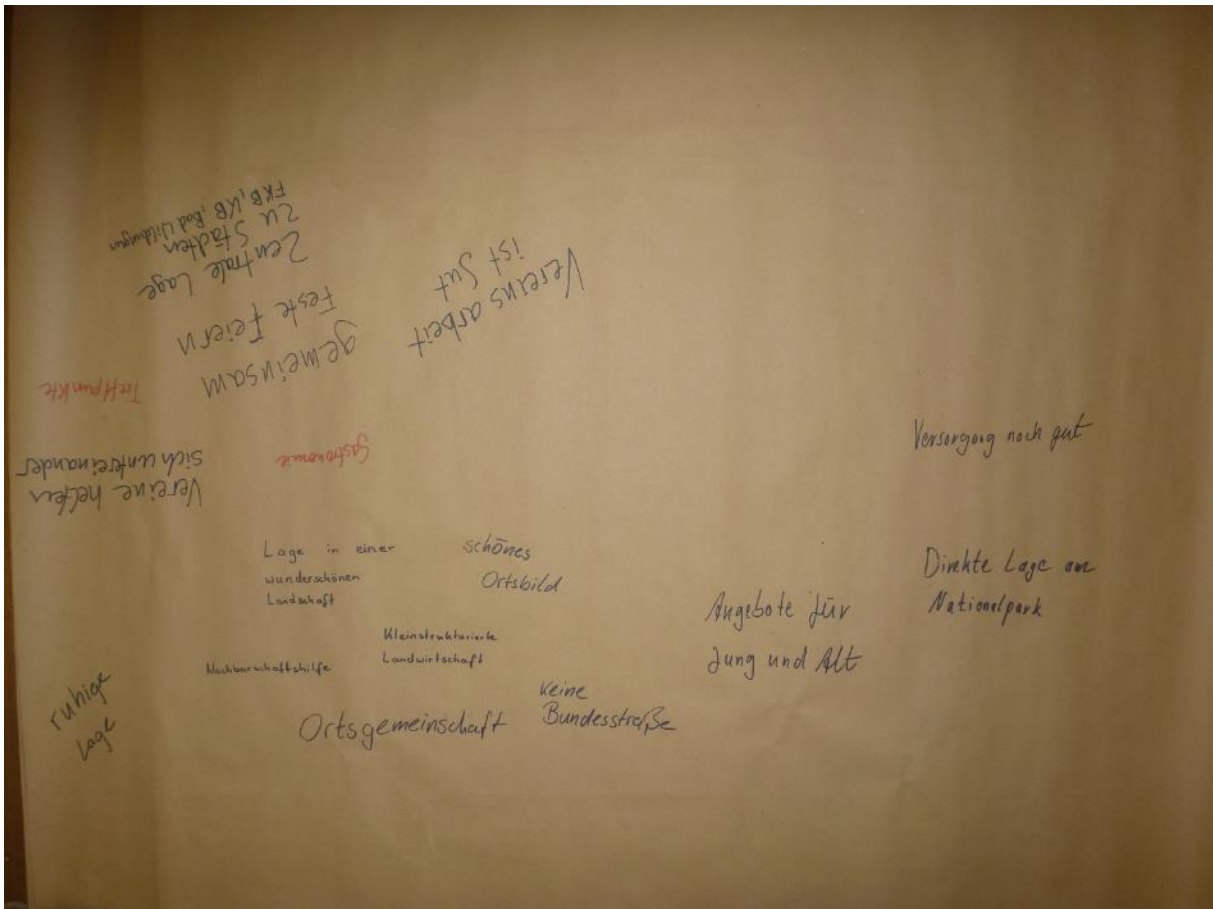 Zentrale Lage
zu Städten
FKB, KB, Bad Wildungen
gemeinsam
Feste Feiern
Vereinsarbeit
ist gut
Treffpunkte
Vereine helfen
sich untereinander
Gastronomie
Versorgung noch gut
Lage in einer
wunderschönen
Landschaft
schönes
Ortsbild
Direkte Lage am
Nationalpark
Angebote für
Jung und Alt
Kleinstrukturierte
Landwirtschaft
Nachbarschaftshilfe
ruhige
Lage
Ortsgemeinschaft
keine
Bundesstraße